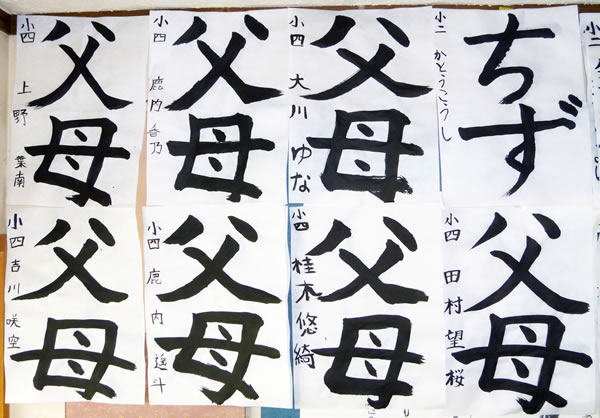 父母
小四 上野 葉南
父母
小四 鹿内 香乃
父母
小四 大川 ゆな
ちず
小二 かとうこうし
小二
父母
小四 吉川 咲空
父母
小四 鹿内 遥斗
父母
小四 桂木悠綺
父母
小四 田村望桜